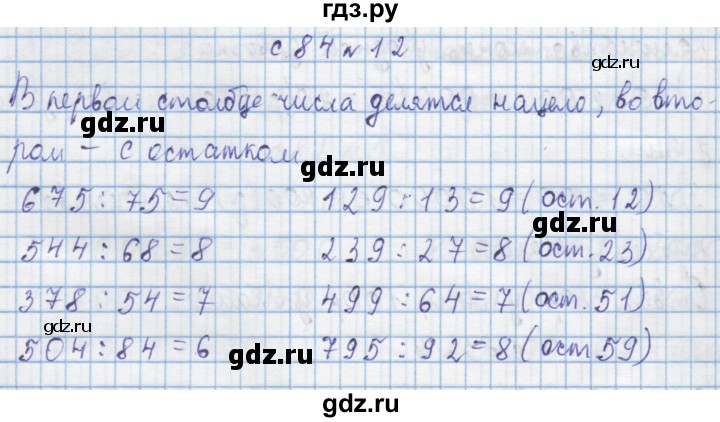 гдз.ру
с 84 № 12
gdz.ru
В первом столбце числа делятся нацело, во вто-
ром – с остатком
gdz.ru
675 : 75 = 9 129 : 13 = 9 (ост. 12)
gdz.ru
544 : 68 = 8 239 : 27 = 8 (ост. 23)
378 : 54 = 7 499 : 64 = 7 (ост. 51)
gdz.ru
504 : 84 = 6 795 : 92 = 8 (ост 59)
gdz.ru
gdz.ru